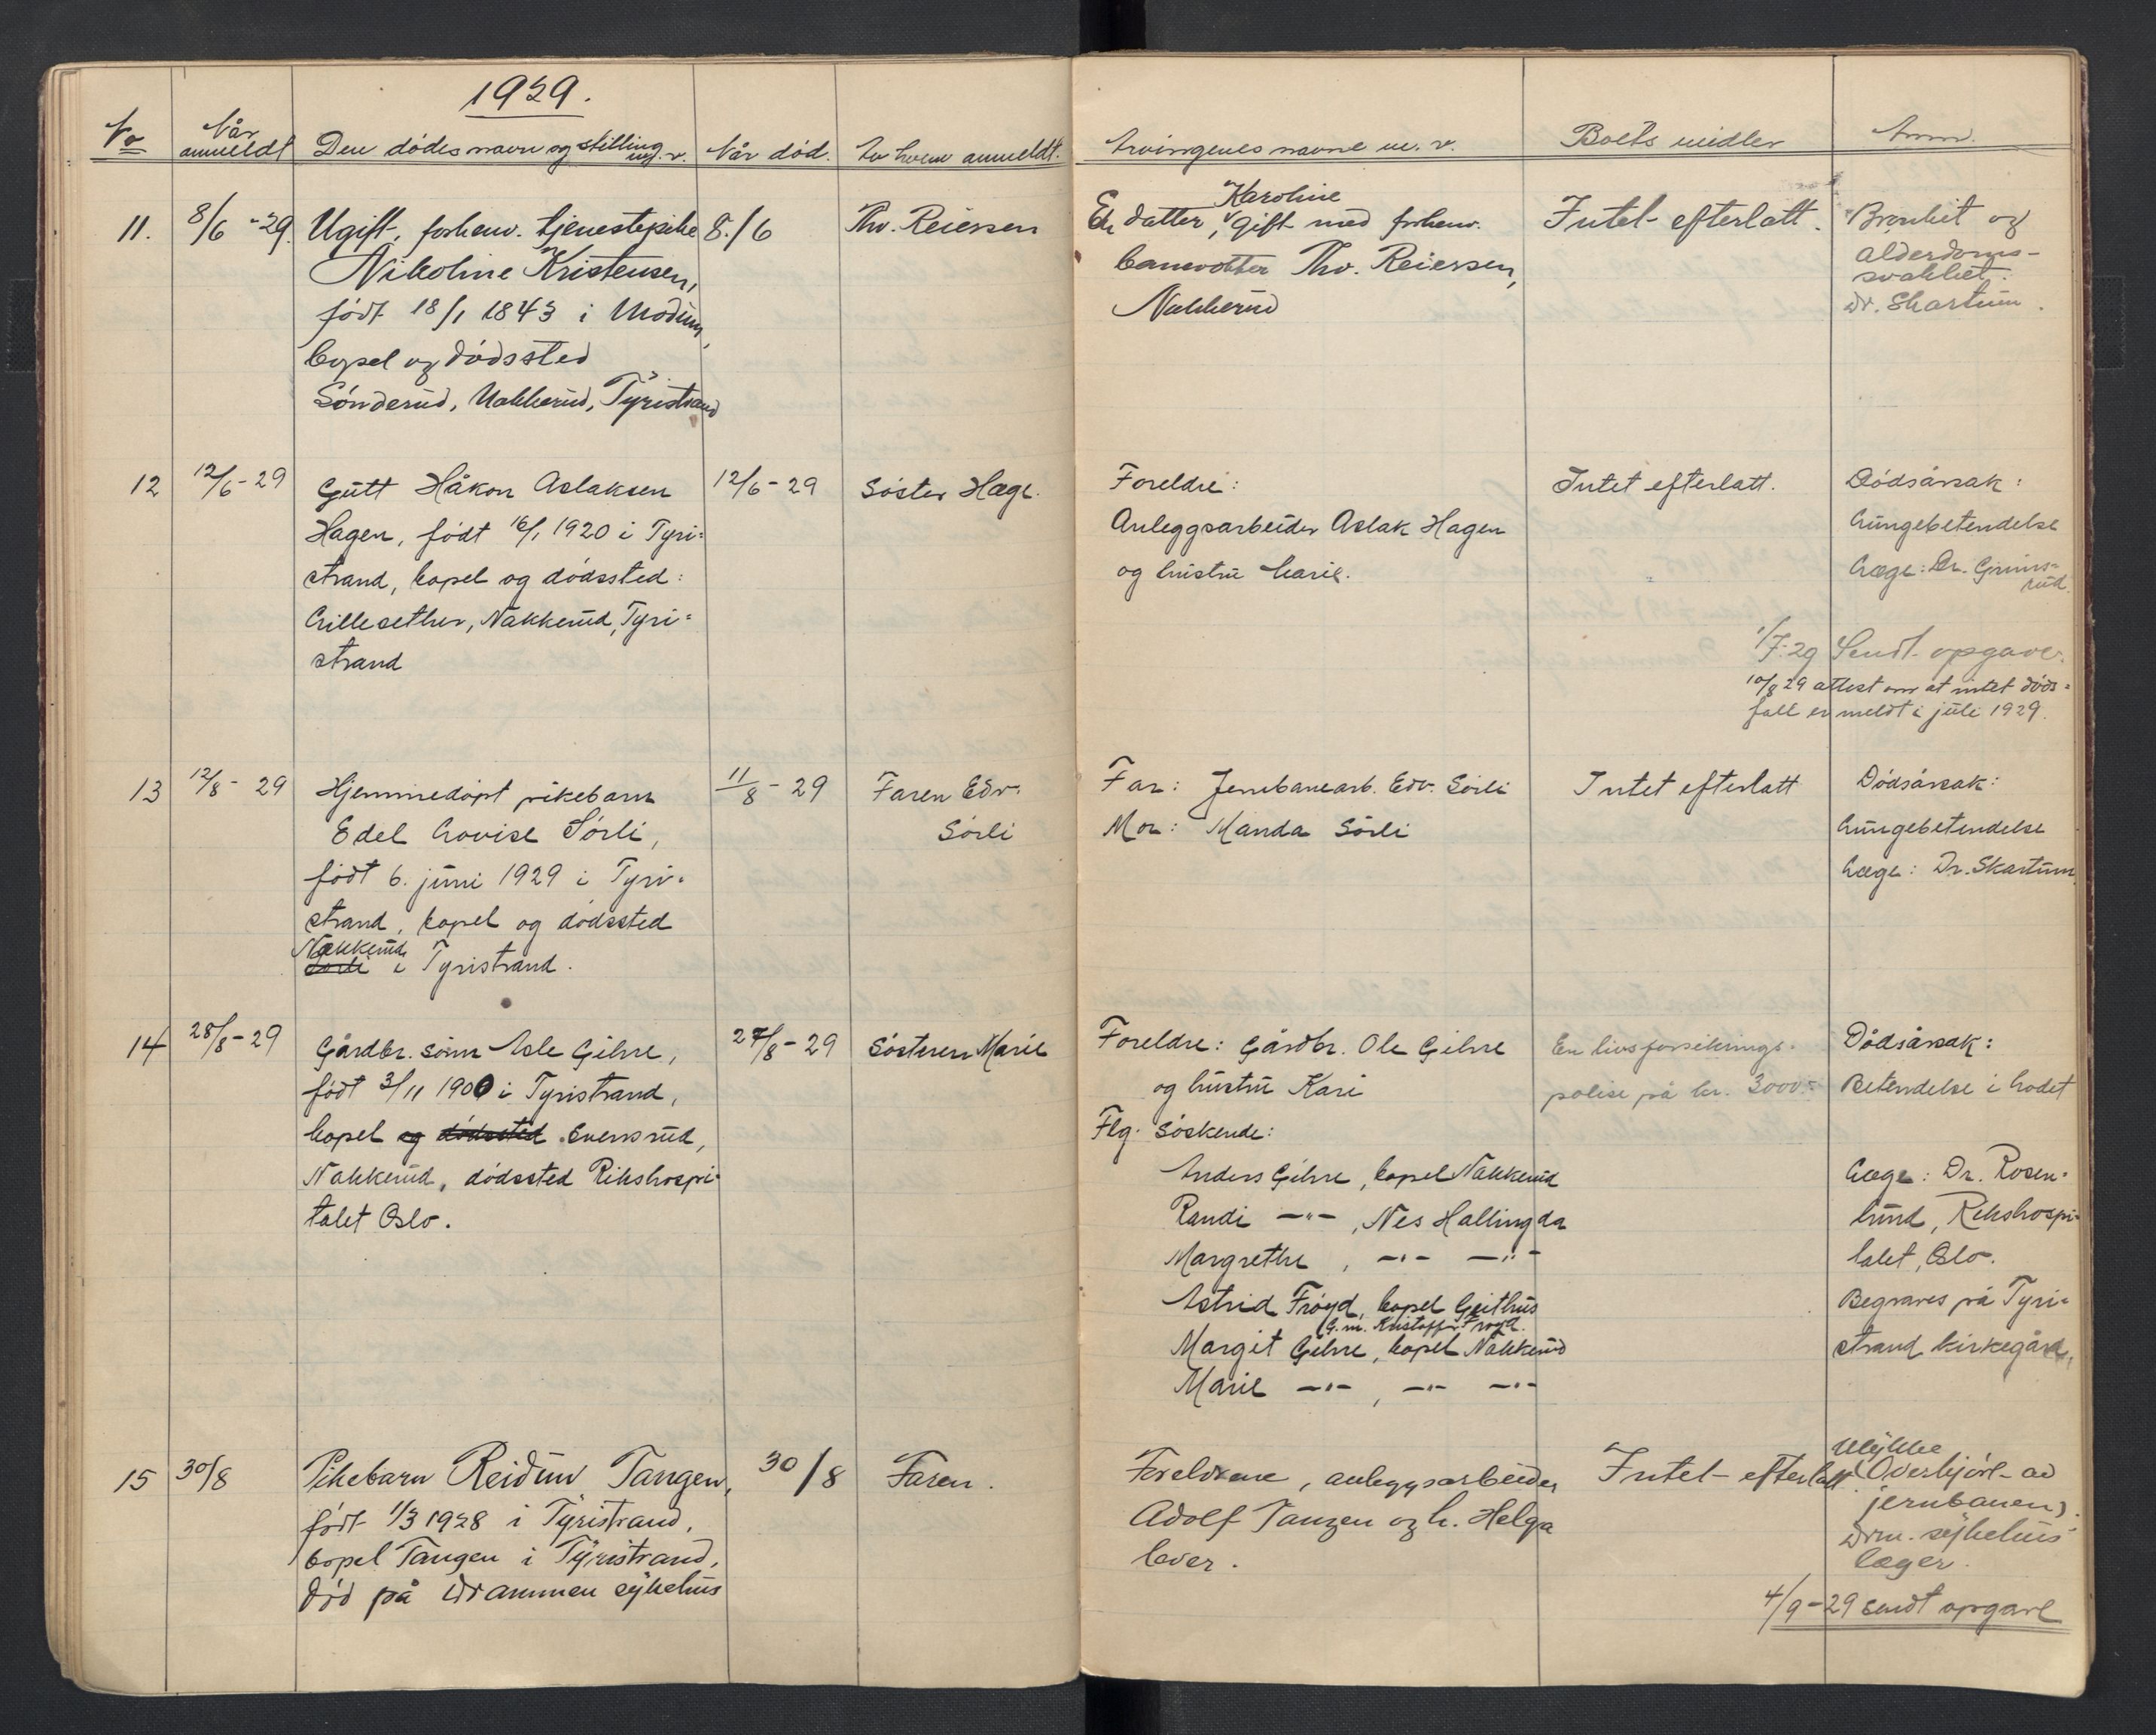 1929.
No
Når anmeldt
Den dødes navn og stilling m.v.
Når død.
Av hvem anmeldt.
Arvingenes navne m. v.
Boets midler
Anm.
11.
8/6 -29.
Ugift, forhenv. tjenestepike
Nikoline Kristensen,
født 18/1 1843 i Modum,
bopel og dødssted
Sønderud, Nakkerud, Tyristrand
8./6
Thv. Reiersen
Karoline
En datter, gift med forhenv.
banevokter Thv. Reiersen,
Nakkerud
Intet efterlatt.
Bronkit og
alderdoms-
svakhet.
Dr. Skartum.
12
12/6-29
Gutt Håkon Aslaksen
Hagen, født 16/1 1920 i Tyri=
strand, bopel og dødssted:
Lillesether, Nakkerud, Tyri=
strand
12/6-29
Søster Hage.
Foreldre:
Anleggsarbeider Aslak Hagen
og hustru Marie.
Intet efterlatt.
Dødsårsak:
Lungebetendelse
Læge: Dr. Grims=
rud.
1/7-29 Sendt opgave.
10/8 29 attest om at intet døds=
fall er meldt i juli 1929.
13
12/8-29
Hjemmedøpt pikebarn
Edel Lovise Sørli,
født 6. juni 1929 i Tyri-
strand, bopel og dødssted
Nakkerud
Sørli i Tyristrand.
11/8-29
Faren Edv.
Sørli
Far: Jernbanearb. Edv. Sørli
Mor: Manda Sørli
Intet efterlatt
Dødsårsak:
Lungebetendelse
Læge: Dr. Skartum.
14
28/8-29
Gårdbr. sønn Asle Gihre,
født 3/11 1900 i Tyristrand,
bopel og dødssted Evensrud,
Nakkerud, dødssted Rikshospi-
talet Oslo.
27/8-29
Søsteren Marie
Foreldre: Gårdbr. Ole Gihre
og hustru Kari
Flg. søskende:
Anders Gihre, bopel Nakkerud
Randi -"-, Nes Hallingda
Margrethe, -"- -"-
Astrid Frøyd, bopel Geithus
(G.m. Kristoffer Frøyd.
Margit Gihre, bopel Nakkerud
Marie -"-, -"- -"-
En livsforsikrings-
polise på kr. 3000.-
Dødsårsak:
Betendelse i hodet
Læge: Dr. Rosen-
lund, Rikshospi=
talet, Oslo.
Begraves på Tyri=
strand kirkegård,
15
30/8
Pikebarn Reidun Tangen,
født 1/3 1928 i Tyristrand,
bopel Tangen i Tyristrand,
død på Drammen sykehus
30/8
Faren.
Foreldrene, anleggsarbeider
Adolf Tangen og h. Helga
lever.
Intet efterlatt.
Ulykke
(Overkjørt av
jernbanen).
Drm. sykehus'
læger.
4/9-29 sendt opgave